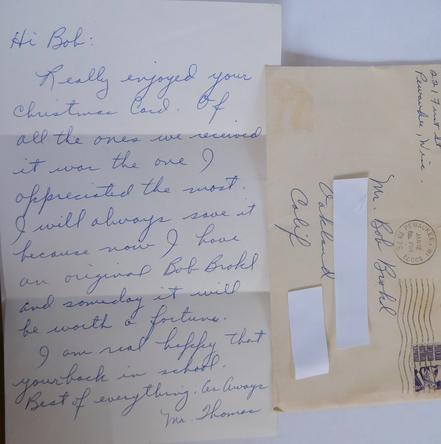 Hi Bob:
Really enjoyed your
Christmas Card. Of
all the ones we received
it was the one I
appreciated the most.
I will always save it
because now I have
an original Bob Brokl
and someday it will
be worth a fortune.
I am real happy that
your back in school.
Best of everything. As Always
Mr. Thomas
Pewaukee, Wisc.
Mr. Bob Brokl
Oakland
Calif